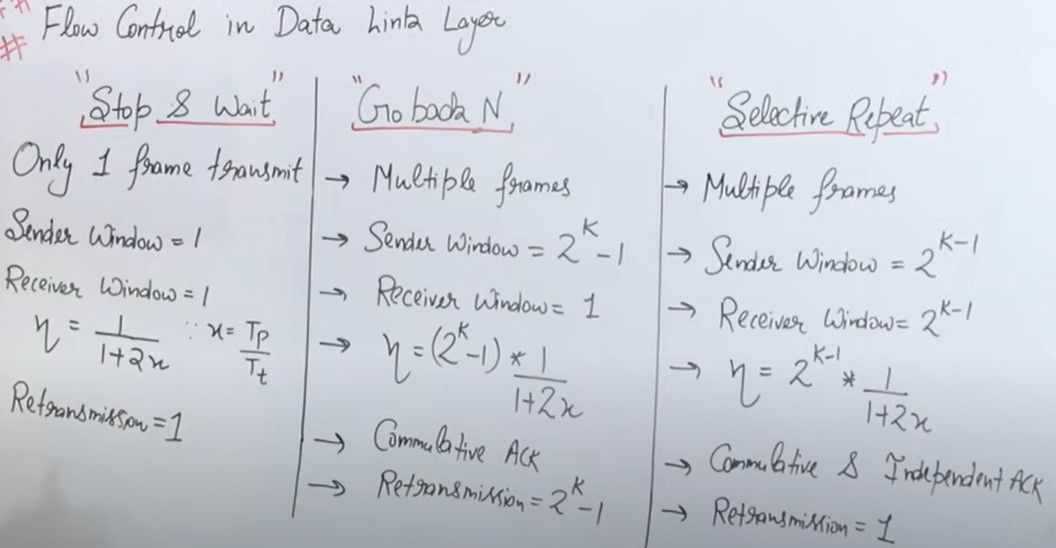 # Flow Control in Data Link Layer
"Stop & Wait"
Only 1 frame transmit
Sender Window = 1
Receiver Window = 1
η = 1/(1+2x) ∵ x = Tp/Tt
Retransmission = 1
"Go back N"
→ Multiple frames
→ Sender Window = 2^K - 1
→ Receiver Window = 1
→ η = (2^K - 1) * 1/(1+2x)
→ Commulative ACK
→ Retransmission = 2^K - 1
"Selective Repeat"
→ Multiple frames
→ Sender Window = 2^(K-1)
→ Receiver Window = 2^(K-1)
→ η = 2^(K-1) * 1/(1+2x)
→ Commulative & Independent ACK
→ Retransmission = 1